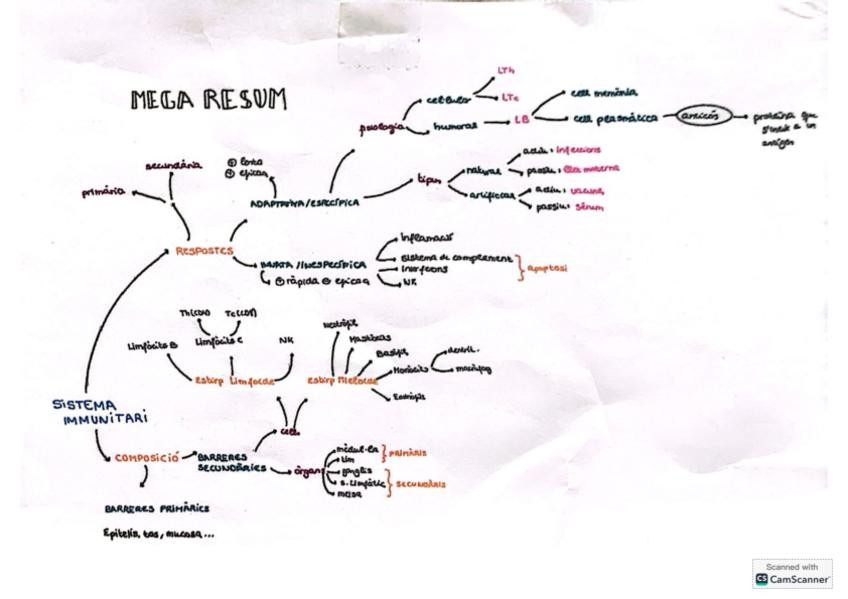 MEGA RESUM
LTh
cel·lular
LTc
cèl·l memòria
fisiologia
humoral
LB
cèl·l plasmàtica
anticòs
proteïna que
s'uneix a un
antigen
secundària
primària
lenta
eficaç
ADAPTATIVA/ESPECÍFICA
tipus
natural
activ: infeccions
passiu: lleta materna
artificial
activ: vacuna
passiu: sèrum
RESPOSTES
INNATA /INESPECÍFICA
⊕ ràpida ⊖ eficaç
inflamació
sistema de complement
interferons
NK
apoptosi
Limfòcits B
NK
Neutròfil
Mastòcits
Basòfil
Monòcits
dendrít.
macròfag
Eosinòfils
Estirp Limfocda
Estirp Mieloide
SISTEMA
IMMUNITARI
cèl.
COMPOSICIÓ
BARRERES
SECUNDÀRIES
òrgans
mèdul·la
tim
PRIMÀRIS
ganglis
s. limfàtic
melsa
SECUNDÀRIS
BARRERES PRIMÀRIES
Epitelis, tos, mucosa...
Scanned with
CS CamScanner